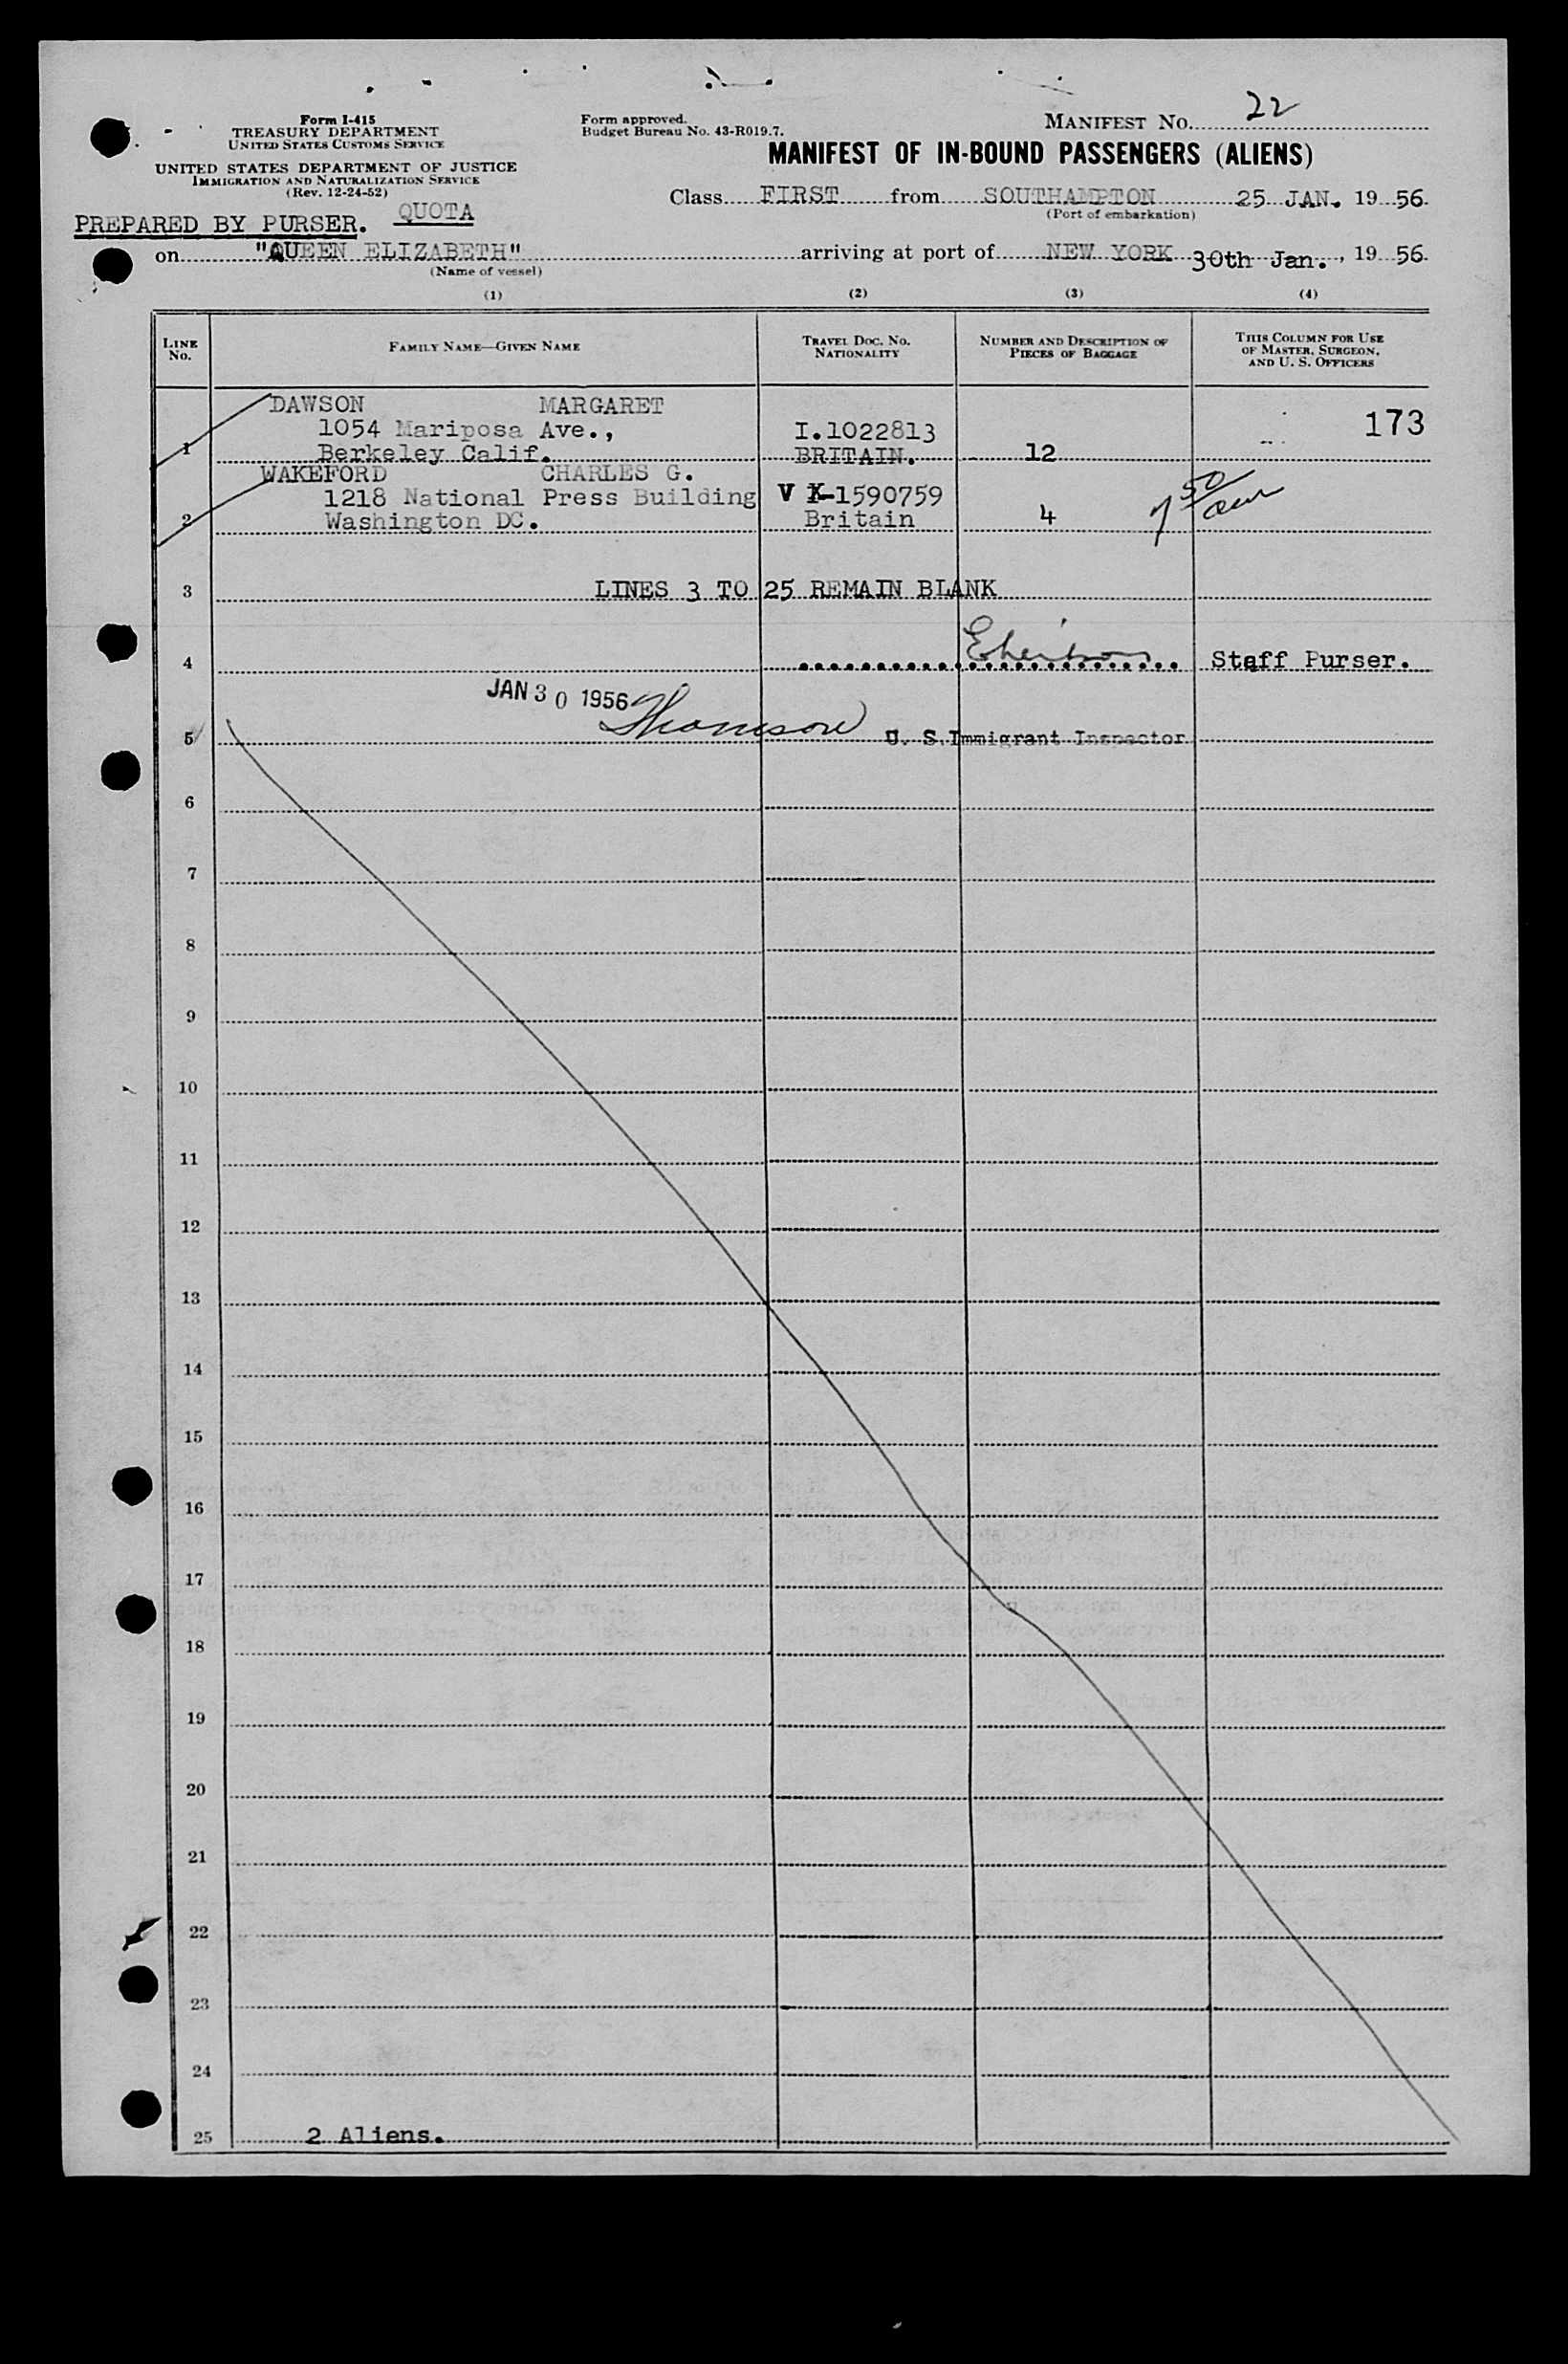 Form I-415
TREASURY DEPARTMENT
UNITED STATES CUSTOMS SERVICE
UNITED STATES DEPARTMENT OF JUSTICE
IMMIGRATION AND NATURALIZATION SERVICE
(Rev. 12-24-52)
Form approved.
Budget Bureau No. 43-R019.7.
MANIFEST NO. 22
MANIFEST OF IN-BOUND PASSENGERS (ALIENS)
Class FIRST from SOUTHAMPTON 25 JAN. 19 56
(Port of embarkation)
PREPARED BY PURSER. QUOTA
on "QUEEN ELIZABETH" arriving at port of NEW YORK 30th Jan., 19 56
(Name of vessel)
(1) (2) (3) (4)
LINE NO. FAMILY NAME—GIVEN NAME TRAVEL DOC. NO. NATIONALITY NUMBER AND DESCRIPTION OF PIECES OF BAGGAGE THIS COLUMN FOR USE OF MASTER, SURGEON, AND U. S. OFFICERS
DAWSON MARGARET 173
1054 Mariposa Ave., I.1022813
1 Berkeley Calif. BRITAIN. 12
WAKEFORD CHARLES G.
1218 National Press Building V X-1590759
2 Washington DC. Britain 4
3 LINES 3 TO 25 REMAIN BLANK
4 Staff Purser.
JAN 30 1956
5 U. S. Immigrant Inspector
6
7
8
9
10
11
12
13
14
15
16
17
18
19
20
21
22
23
24
25 2 Aliens.